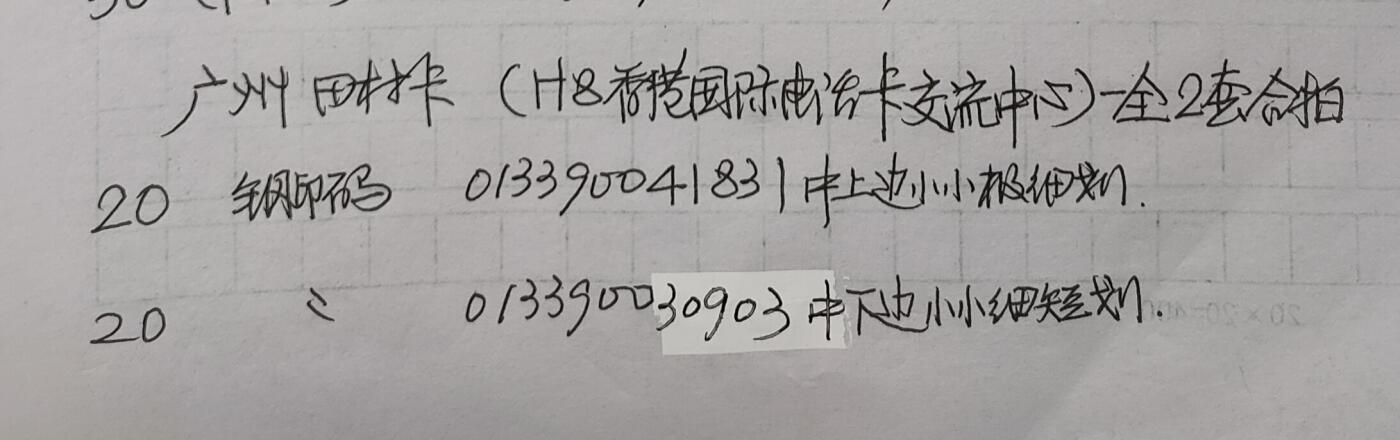 广州田村卡(H8香港国际电话卡交流中心)一全2套合拍
20 钢印码 013390041831中上边小小极细划.
20 〃 013390030903中下边小小细短划.